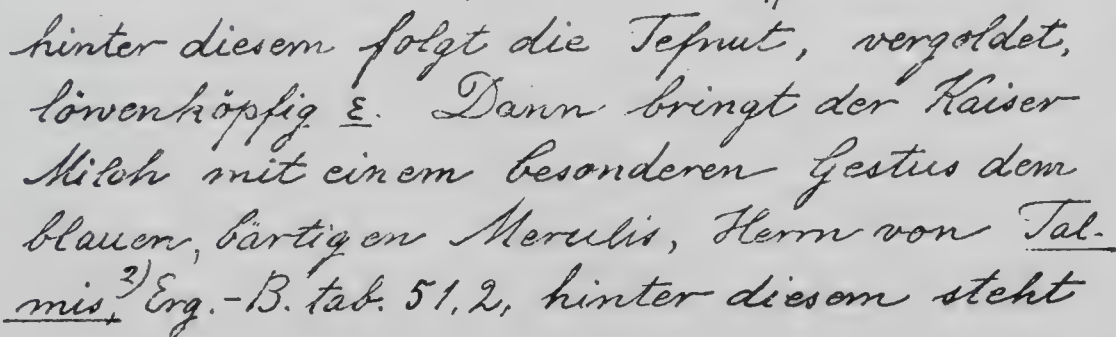 hinter diesem folgt die Tefnut, vergoldet,
löwenköpfig ε. Dann bringt der Kaiser
Milch mit einem besonderen Gestus dem
blauen, bärtigen Merulis, Herrn von Tal-
mis,²⁾ Erg.-B. tab. 51,2, hinter diesem steht